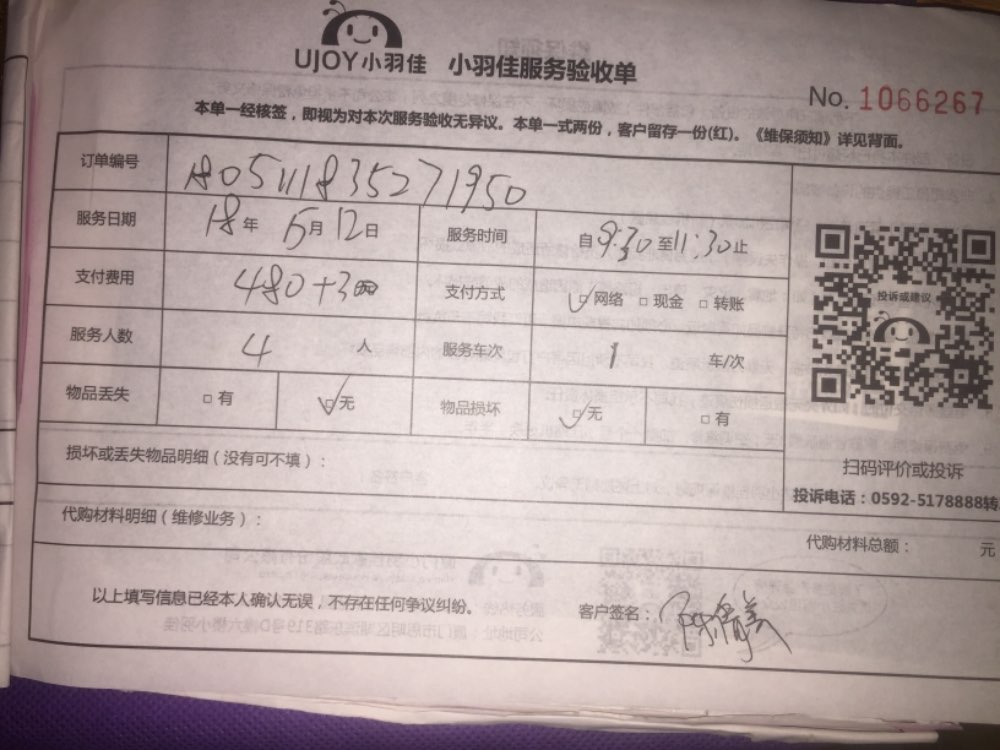 UJOY小羽佳 小羽佳服务验收单
No. 1066267
本单一经核签，即视为对本次服务验收无异议。本单一式两份，客户留存一份(红)。《维保须知》详见背面。
订单编号 180511183527 1950
服务日期 18年 5月12日 服务时间 自9:30至11:30止
支付费用 480+300 支付方式 ☑网络 □现金 □转账
服务人数 4 人 服务车次 1 车/次
物品丢失 □有 ☑无 物品损坏 ☑无 □有
投诉或建议
扫码评价或投诉
投诉电话：0592-5178888转
损坏或丢失物品明细（没有可不填）：
代购材料明细（维修业务）：
代购材料总额： 元
以上填写信息已经本人确认无误，不存在任何争议纠纷。 客户签名：